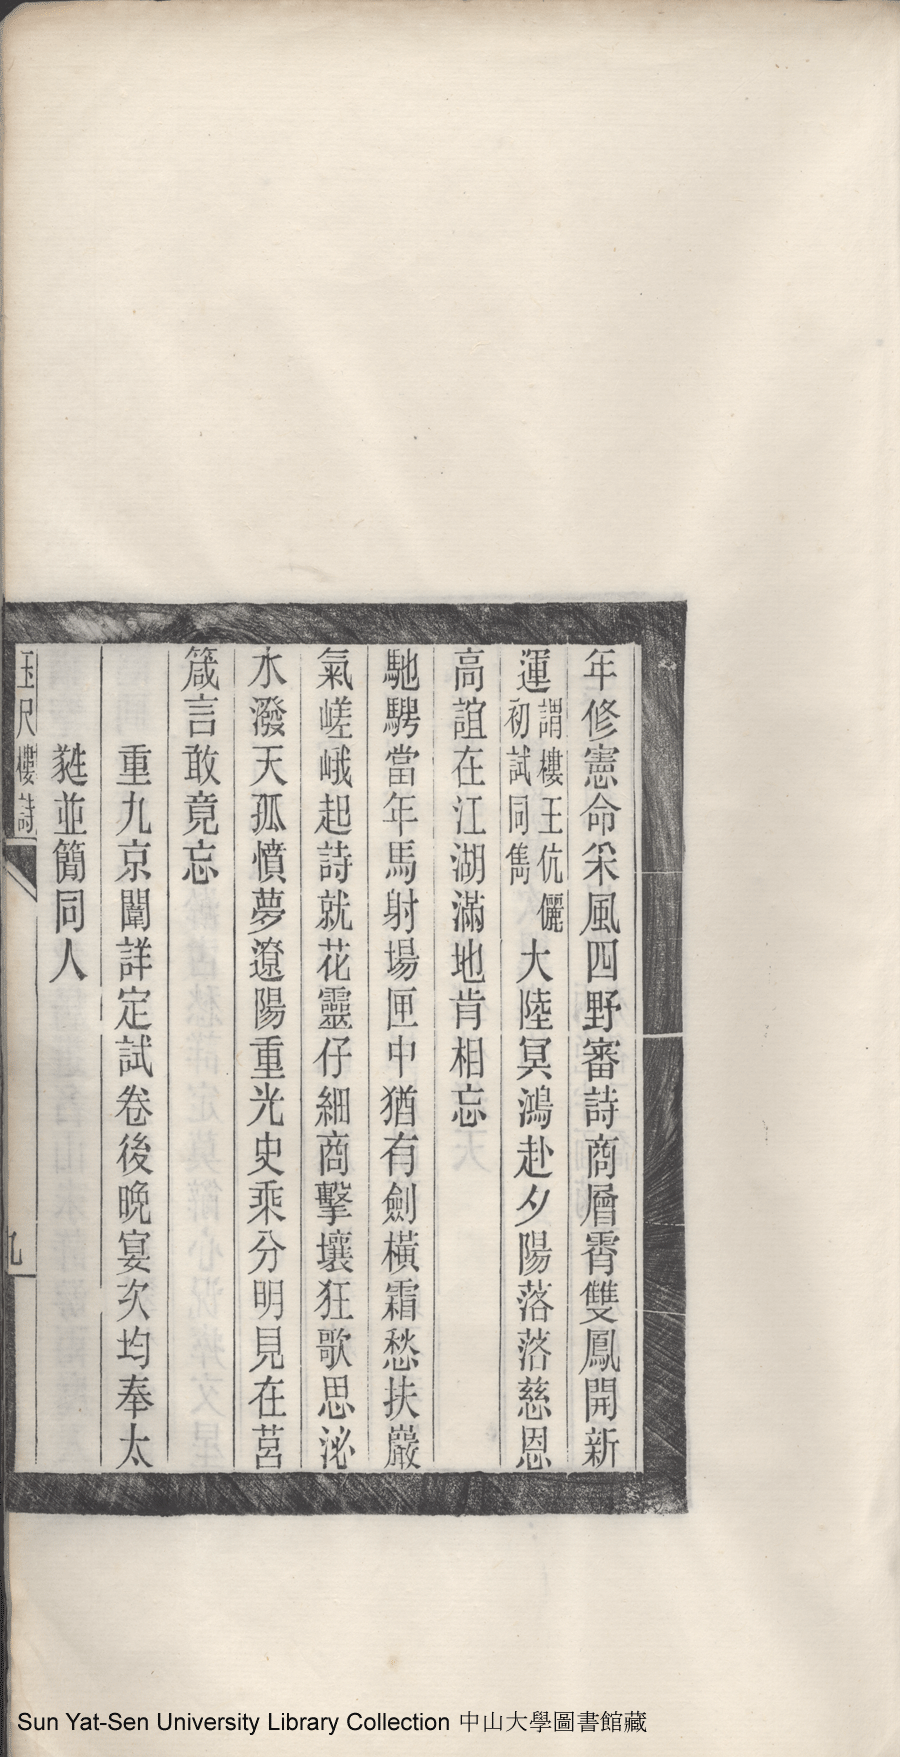 年修憲命采風四野審詩商層霄雙鳳開新
運謂樓王伉儷初試同雋大陸冥鴻赴夕陽落落慈恩
高誼在江湖滿地肯相忘
馳騁當年馬射場匣中猶有劍橫霜愁扶巖
氣嵯峨起詩就花靈仔細商擊壤狂歌思泌
水潑天孤憤夢遼陽重光史乘分明見在莒
箴言敢竟忘
重九京闈詳定試卷後晚宴次均奉太
甤並簡同人
玉尺樓詩
九
Sun Yat-Sen University Library Collection 中山大學圖書館藏